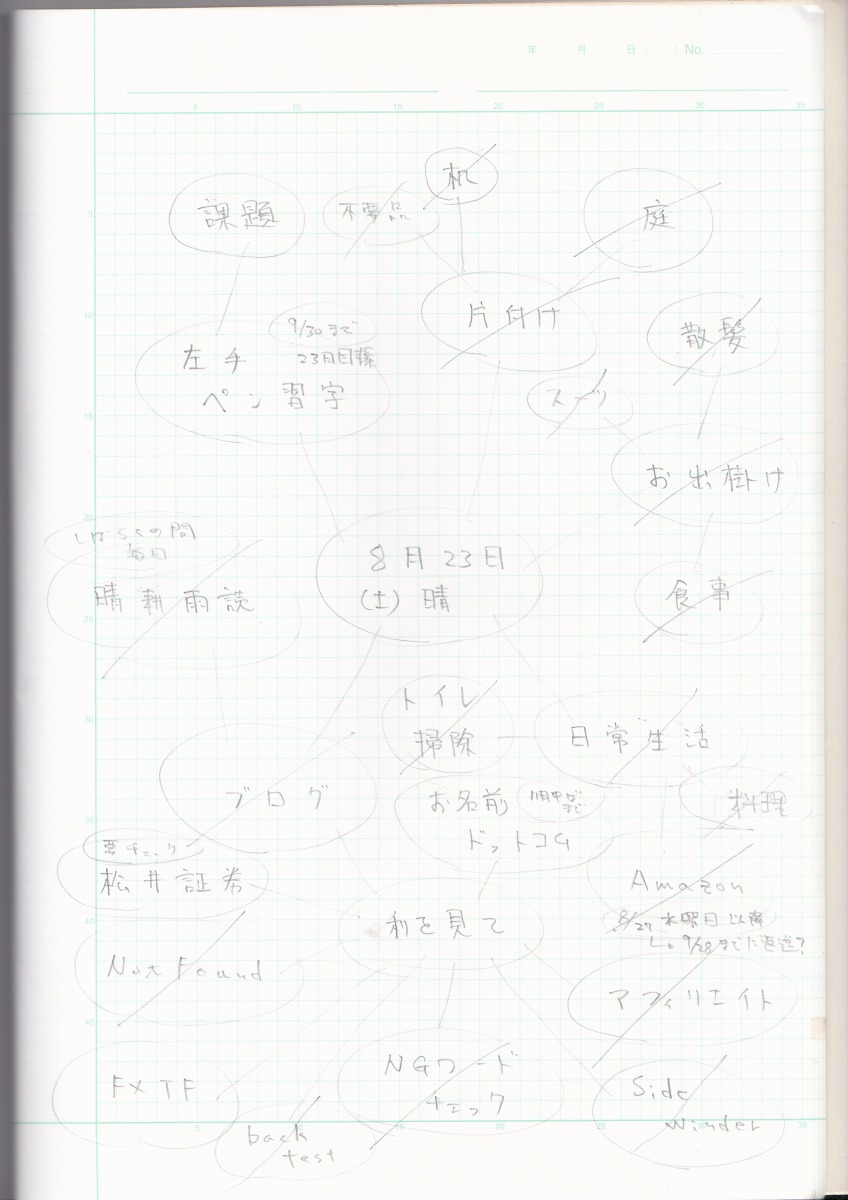 年 月 日( ) No.
5 10 15 20 25 30 35
机
課題
不要品
庭
5
片付け
10
9/30まで
散髪
左手
23日目標
ペン習字
スーツ
15
お出掛け
20
しばらくの間
毎日
8月23日
(土)晴
晴耕雨読
食事
25
トイレ
掃除
日常生活
30
ブログ
お名前
ドットコム
料理
35
要チェック
松井証券
Amazon
8/27 水曜日以降
9/28までに返送?
利を見て
40
Not Found
アフィリエイト
45
FXTF
NGワード
チェック
Side
Winder
5 10 15 20 25 30 35
back
test